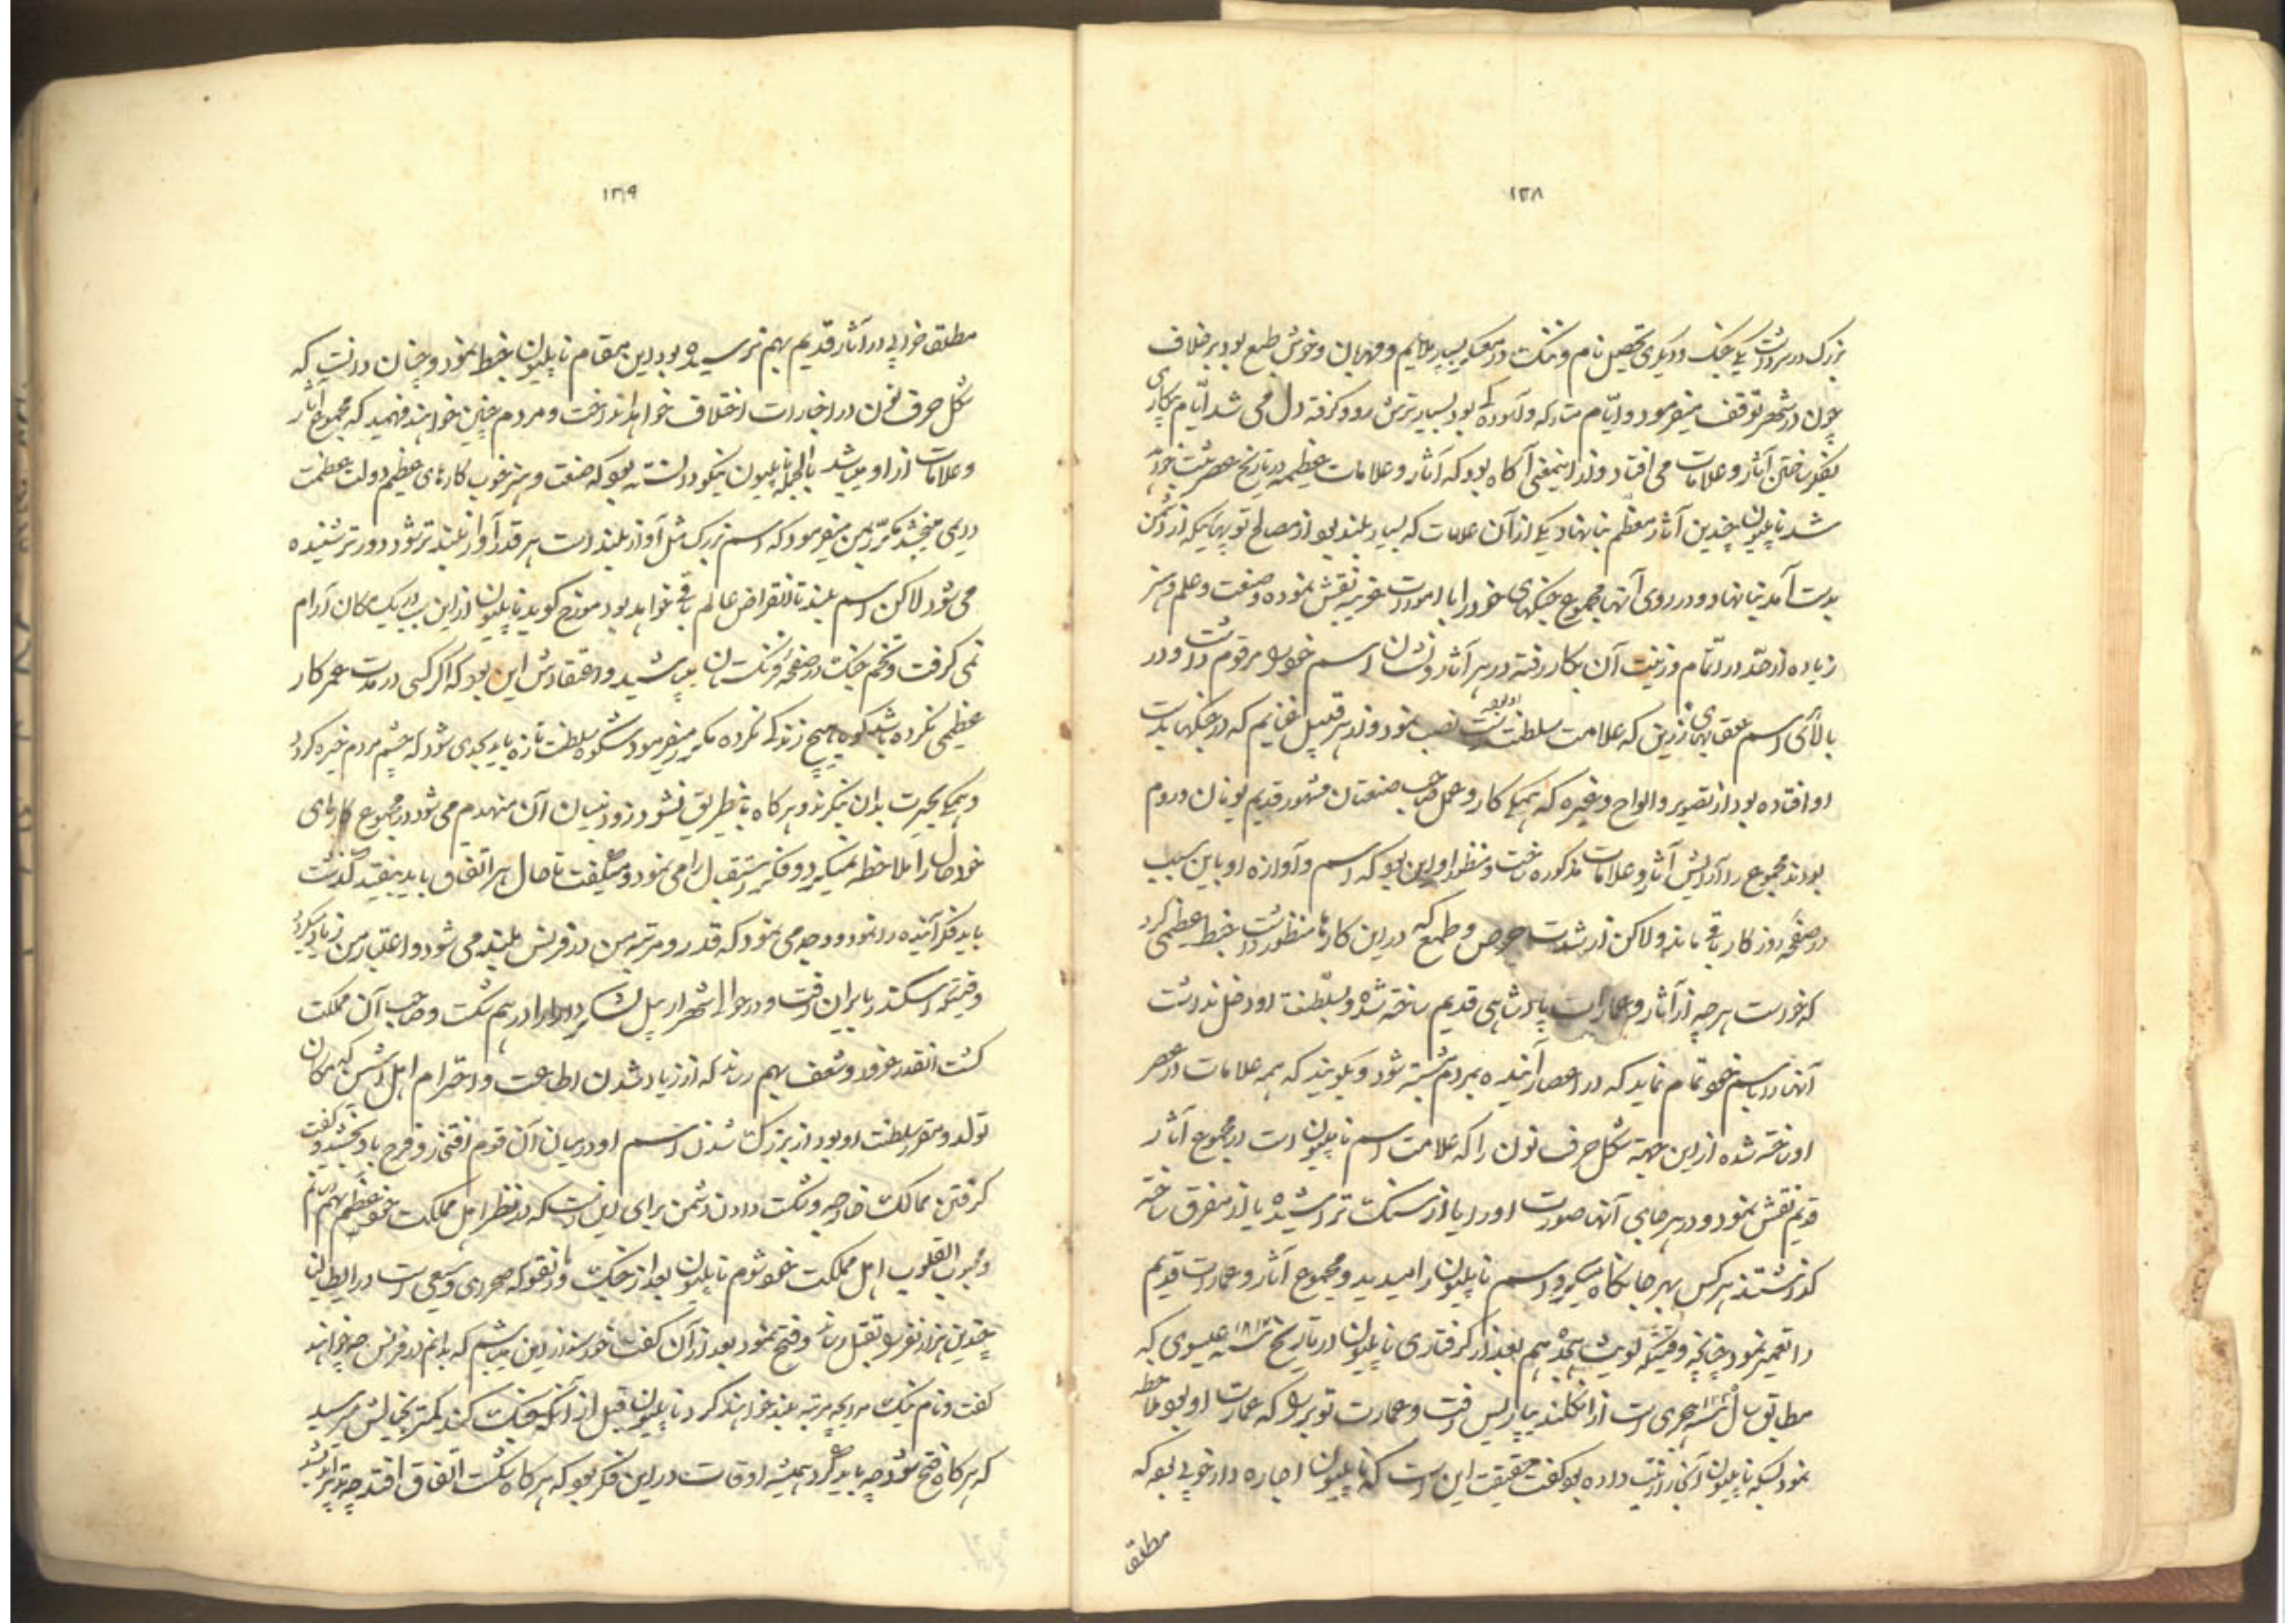 ۱۳۸
بزرگ در سر داشت یکی جنگ و دیگری تحصیل نام و ننگ در معرکه بسیار ملایم و مهربان و خوش طبع بود برخلاف
چون در شهر توقف میفرمود و ایام متارکه و آسوده بود بسیار ترش رو و گرفته دل می شد ایام بیکاری
بفکر ساختن آثار و علامات می افتاد و از اینمعنی آگاه بود که آثار و علامات عظیمه در تاریخ عصر ثبت خواهد
شد ناپلیون چندین آثار معظم بنا نهاد یکی از آن علامات که بسیار بلند بود از مصالح توپهائیکه از دشمن
بدست آمد بنا نهاد و در روی آنها مجموع جنگهای خود را با امورات غریبه نقش نموده و صنعت و علم و هنر
زیاده از حد در اتمام و زینت آن بکار رفته در هر آثار و نشان اسم خود را مرقوم داشت و در
بالای اسم عقابهای زرین که علامت سلطنت او بود نصب نمود و از هر قبیل غنایم که در جنگها بدست
او افتاده بود از تصویر و الواح و غیره که همگی کار و عمل صاحب صنعتان مشهور قدیم یونان و روم
بودند مجموع را آرایش آثار و علامات مذکوره ساخت و منظور او این بود که اسم و آوازه او باین سبب
در صفحه روزگار باقی ماند و لاکن از شدت حرص و طمع که در این کارها منظور داشت خبط عظیمی کرد
که خواست هر چه از آثار و عمارات پادشاهی قدیم ساخته شده و بسلطنت او دخل نداشت
آنها را باسم خود تمام نماید که در اعصار آینده بمردم مشتبه شود و بگویند که همه علامات در عصر
او ساخته شده از این جهة شکل حرف نون را که علامت اسم ناپلیون است در مجموع آثار
قدیم نقش نمود و در هر جای آنها صورت او را یا از سنگ تراشیده یا از مفرق ساخته
گذاشتند هر کس بهر جا نگاه میکرد اسم ناپلیون را میدید و مجموع آثار و عمارات قدیم
را تعمیر نمود چنانچه وقتیکه لویٔ هجدهم بعد از گرفتاری ناپلیون در تاریخ سنه ۱۸۱۴ عیسوی که
مطابق سال سنه هجری است از انگلند بپاریس رفت و عمارت تویری را که عمارت او بود ملاحظه
نمود که ناپلیون آنجا را زینت داده بود گفت حقیقت این است که ناپلیون اجاره دار خوبی بود که
مطلق
۱۳۹
مطلق خرابی در آثار قدیم بهم نرسیده بود در این مقام ناپلیون خبط نمود و چنان دانست که
شکل حرف نون در اخبارات اختلاف خواهد انداخت و مردم چنین خواهند فهمید که مجموع آثار
و علامات از او میباشد بالجمله ناپلیون نیکو دانسته بود که صنعت و هنر خوب کارهای عظیم دولت عظمت
دیگری میبخشد مکرر بمن میفرمود که اسم بزرگ مثل آواز بلند است هر قدر آواز بلندتر شود دورتر شنیده
می شود لاکن اسم بلند تا انقراض عالم باقی خواهد بود مورخ گوید ناپلیون از این سبب در یک مکان آرام
نمی گرفت و تخم جنگ در صفحه فرنگستان میپاشید و اعتقادش این بود که اگر کسی در مدت عمر کار
عظیمی نکرده باشد گویا هیچ زندگی نکرده مکرر میفرمود شکوه سلطنت تازه باید بحدی شود که چشم مردم خیره گردد
و همگی بحیرت بدان نگرند و هر گاه باینطریق نشود زود بنیان آن منهدم می شود در مجموع کارهای
خود حال را ملاحظه نمیکرد و فکر استقبال را می نمود و میگفت تا حال هر اتفاق باید بیفتد گذشت
باید فکر آینده را نمود و وجه می نمود که قدر و مرتبه من در فرنس بلند می شود و اعتبار من زیاد میگردد
وقتیکه اسکندر بایران رفت و در حوالی شهر اربیل لشکر دارا را در هم شکست و صاحب آن مملکت
گشت آنقدر غرور و شعف بهم رساند که از زیاد شدن اطاعت و احترام اهل اتنس که مکان
تولد و مقر سلطنت او بود از بزرگ شدن اسم او در میان آن قوم افتخار و فرح باو بخشید و گفت
گرفتن ممالک خارجه و شکست دادن دشمن برای این است که در نظر اهل مملکت خود عظم بهم رسانم
و محبوب القلوب اهل مملکت خود شوم ناپلیون بعد از جنگ که صحرای وسیعی است در ایطالیا
چندین هزار نفر را بقتل رساند و فتح نمود بعد از آن گفت خورسند از این میباشم که بدانم در فرنس چه خواهند
گفت و نام نیک مرا بچه مرتبه بلند خواهند کرد ناپلیون قبل از آنکه جنگ کند کمتر بخیالش میرسید
که هر گاه فتح شود چه باید کرد همیشه اوقات در این فکر بود که هر گاه شکست اتفاق افتد چه تدبیر